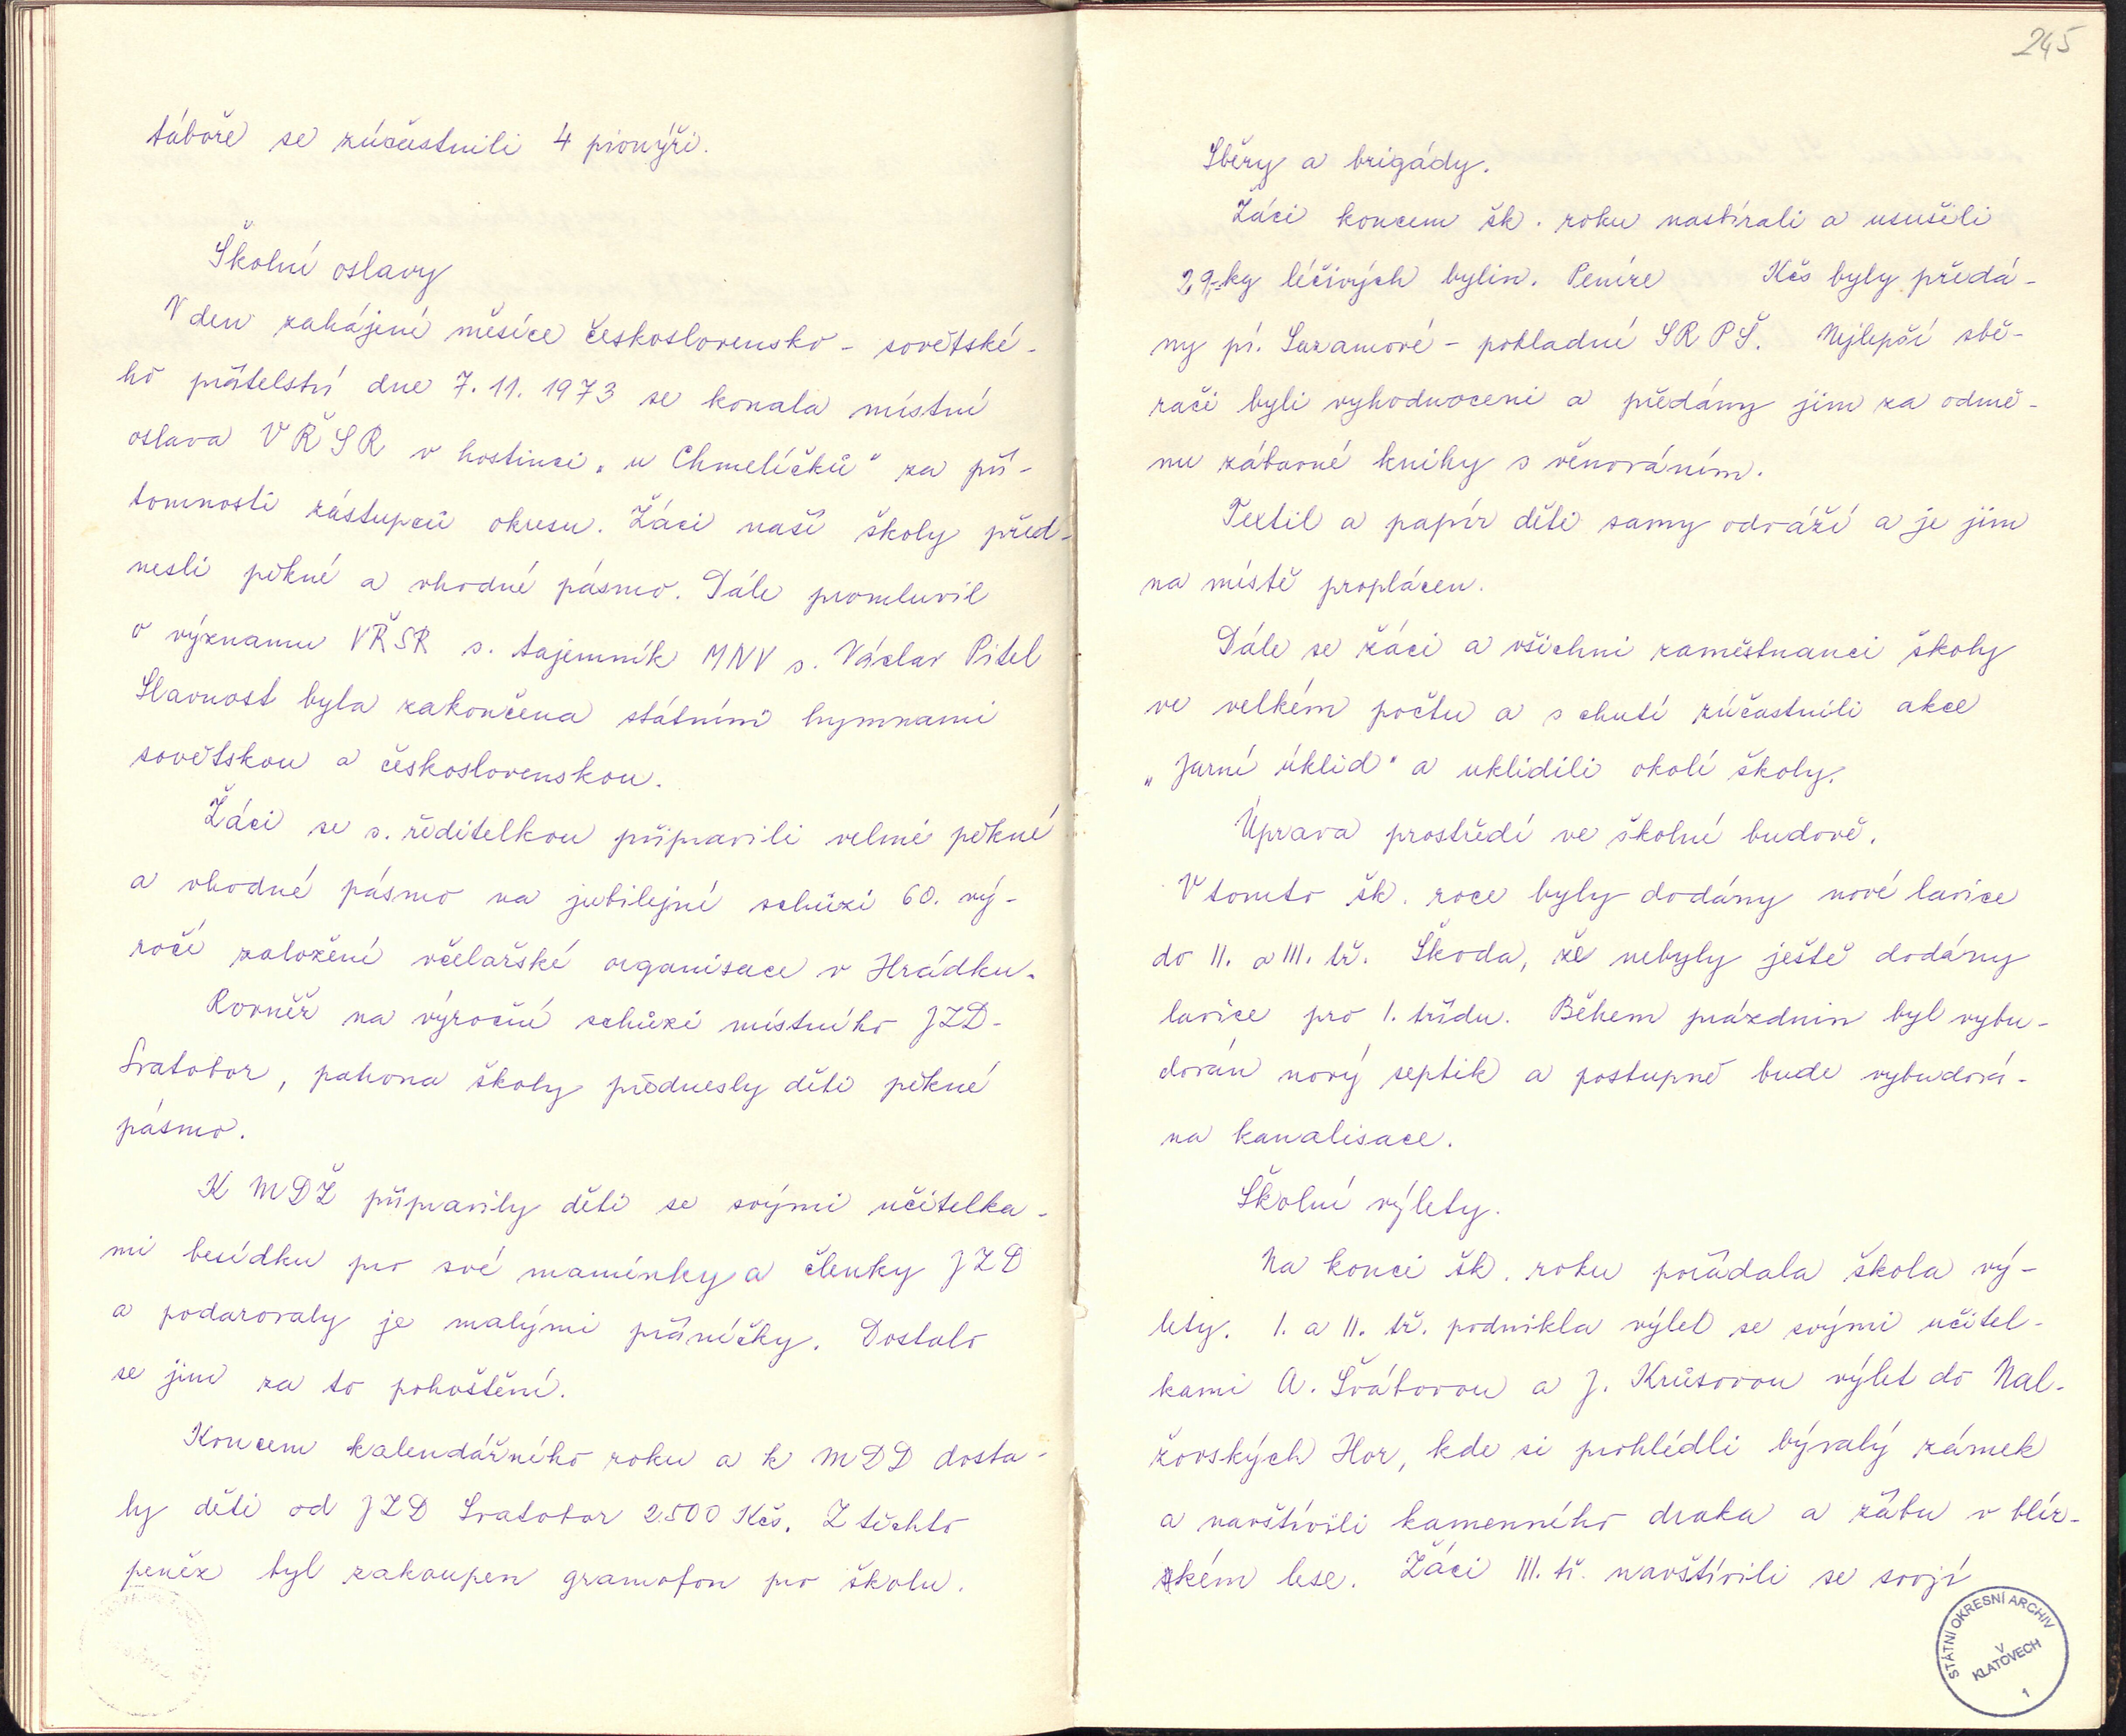 táboře se zúčastnili 4 pionýři.
Školní oslavy
V den zahájení měsíce československo - sovětské-
ho přátelství dne 7. 11. 1973 se konala místní
oslava VŘSR v hostinci „u Chmelíčků" za pří-
tomnosti zástupců okresu. Žáci naší školy před-
nesli pěkné a vhodné pásmo. Dále promluvil
o významu VŘSR s. tajemník MNV s. Václav Pitel
Slavnost byla zakončena státními hymnami
sovětskou a československou.
Žáci se s. ředitelkou připravili velmi pěkné
a vhodné pásmo na jubilejní schůzi 60. vý-
ročí založení včelařské organisace v Hrádku.
Rovněž na výroční schůzi místního JZD-
Svatobor, patrona školy přednesly děti pěkné
pásmo.
K MDŽ připravily děti se svými učitelka-
mi besídku pro své maminky a členky JZD
a podarovaly je malými přáníčky. Dostalo
se jim za to pohoštění.
Koncem kalendářního roku a k MDD dosta-
ly děti od JZD Svatobor 2.500 Kčs. Z těchto
peněz byl zakoupen gramofon pro školu.
245
Sběry a brigády.
Žáci koncem šk. roku nasbírali a usušili
29,-kg léčivých bylin. Peníze Kčs byly předá-
ny pí. Sazamové - pokladní SRPŠ. Nejlepší sbě-
rači byli vyhodnoceni a předány jim za odmě-
nu zábavné knihy s věnováním.
Textil a papír děti samy odváží a je jim
na místě proplácen.
Dále se žáci a všichni zaměstnanci školy
ve velkém počtu a s chutí zúčastnili akce
„Jarní úklid" a uklidili okolí školy.
Úprava prostředí ve školní budově.
V tomto šk. roce byly dodány nové lavice
do II. a III. tř. Škoda, že nebyly ještě dodány
lavice pro I. třídu. Během prázdnin byl vybu-
dován nový septik a postupně bude vybudová-
na kanalisace.
Školní výlety.
Na konci šk. roku pořádala škola vý-
lety. I. a II. tř. podnikla výlet se svými učitel-
kami A. Švábovou a J. Krůsovou výlet do Nal-
žovských Hor, kde si prohlédli bývalý zámek
a navštívili kamenného draka a žábu v blíz-
kém lese. Žáci III. tř. navštívili se svojí
STÁTNÍ OKRESNÍ ARCHIV
V
KLATOVECH
1